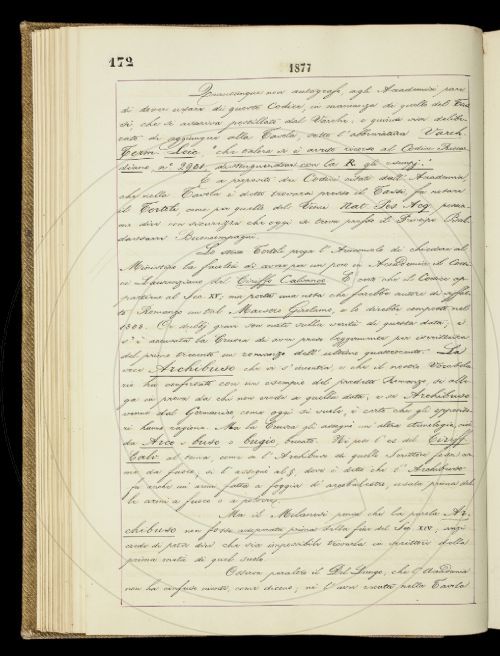 172
1877
Quantunque non autografi, agli Accademici pare
di dover usare di questo Codice, in mancanza di quello del
che si postillato dal Varchi, e quindi vien delibe-
rato di aggiungere alla Tavola, sotto l'abbreviatura Varch.
"che talora si è avuto ricorso al Codice Riccar-
diano n.° 2901, distinguendosi con la R. gli esempj."
E a proposito dei Codici citati dall'Accademia,
che nella Tavola è detto trovarsi presso il Tassi, fa notare
il Tortoli come per quello del Nat. Acq.
non sicurezza che oggi si trova presso il Principe Bal-
dassarre Buoncompagni.
Lo stesso Tortoli prega l'Arciconsolo di chiedere al
Ministero la facoltà di avere per un poco in Accademia il Codi-
ce Laurenziano del Ciriffo Calvaneo. E vero che il Codice ap-
partiene al Sec. XV, ma porta una nota che farebbe autore di
Romanzo un tal Maestro Girolamo, e lo direbbe composto nel
1303. Or gran son nate sulla verità di questa data, e
s'è accusata la Crusca di aver preso leggermente per scrittura
del primo trecento un romanzo dell'ultimo quattrocento. La
voce Archibuso che vi s'incontra, e che il nostro Vocabola-
rio ha confortato con un esempio del predetto Romanzo, si alle-
ga in prova da chi non crede a quella data; e se Archibuso
viene dal Germanico, come oggi si vuole, è certo che gli oppositori
hanno ragione. Ma la Crusca gli assegnò un'altra etimologia, cioè
da Arco e buso o bugio, bucato. Ne per l'es. del Ciriff.
Calv. al tema, come se l'Archibuso di quello Scrittore fosse ar-
me da fuoco, si l'assegnò al §. dove è detto che l'Archibuso
fu anche un'arme fatta a foggia di arcobalestro, usata prima del-
le armi a fuoco o a polvere.
Ma il Milanesi pensa che la parola Ar-
chibuso non fosse adoperata prima della fine del Sec. XIV, anzi
crede di poter dire che sia impossibile trovarla in scrittori della
prima metà di quel secolo.
Osserva peraltro il Del Lungo, che l'Accademia
non ha confuso niente, come dicono, nè l'aver citato nella Tavola